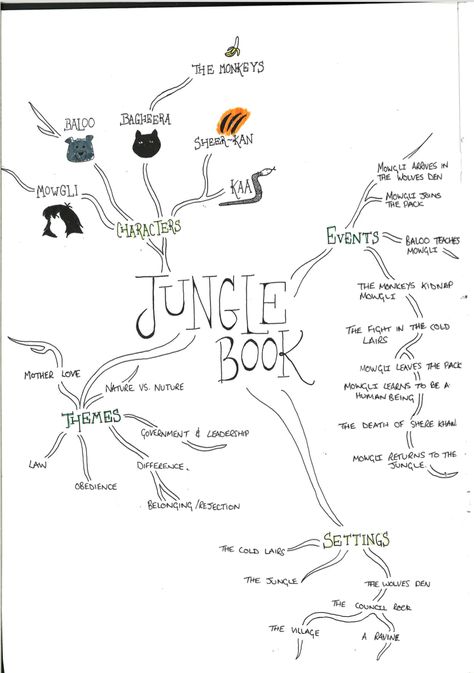 THE MONKEYS
BALOO
BAGHEERA
SHEER-KAN
MOWGLI
KAA
CHARACTERS
JUNGLE
BOOK
EVENTS
MOWGLI ARRIVES IN
THE WOLVES DEN
MOWGLI JOINS
THE PACK
BALOO TEACHES
MOWGLI
THE MONKEYS KIDNAP
MOWGLI
THE FIGHT IN THE COLD
LAIRS
MOWGLI LEAVES THE PACK
MOWGLI LEARNS TO BE A
HUMAN BEING
THE DEATH OF SHERE KHAN
MOWGLI RETURNS TO THE
JUNGLE.
MOTHER LOVE
NATURE VS. NUTURE
THEMES
GOVERNMENT & LEADERSHIP
LAW
OBEDIENCE
DIFFERENCE.
BELONGING/REJECTION
SETTINGS
THE COLD LAIRS
THE JUNGLE
THE WOLVES DEN
THE COUNCIL ROCK
THE VILLAGE
A RAVINE